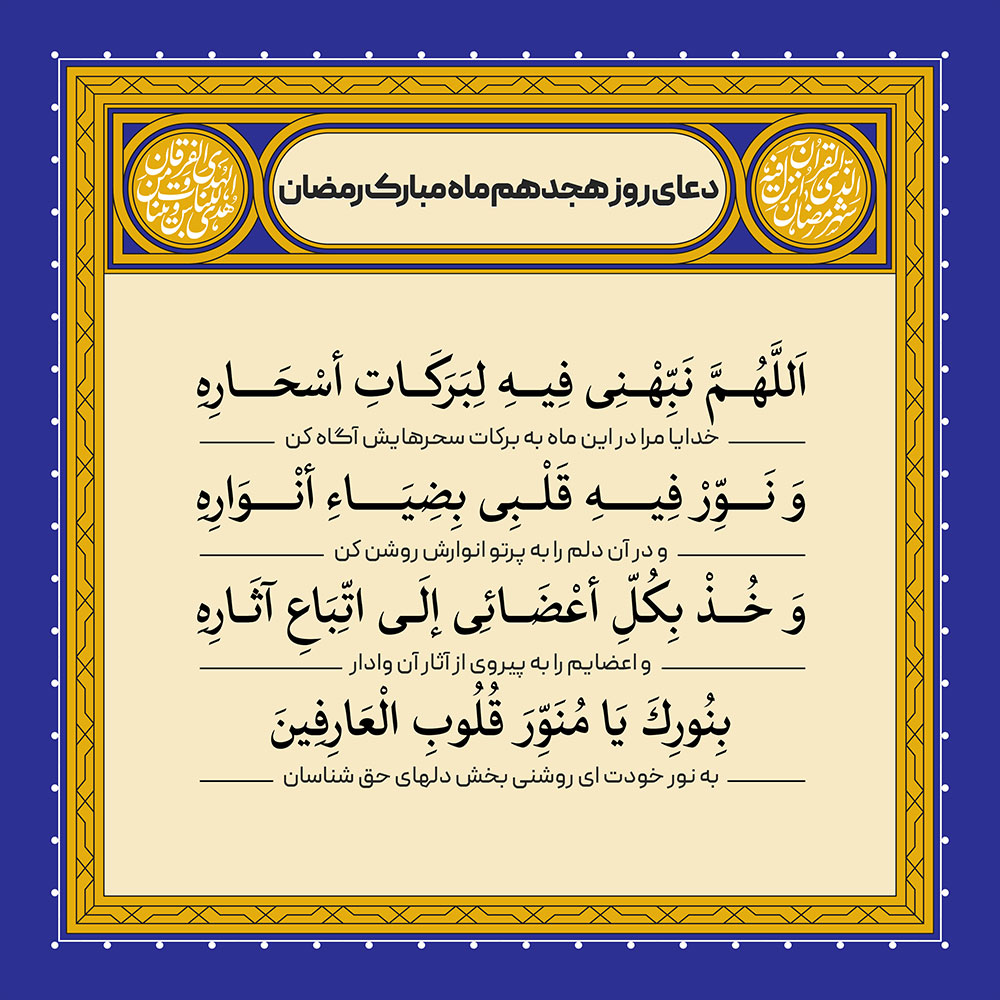 شهر رمضان الذی انزل فیه القرآن
دعای روز هجدهم ماه مبارک رمضان
هدی للناس و بینات من الهدی و الفرقان
اَللَّهُمَّ نَبِّهْنِی فِیهِ لِبَرَكَاتِ أَسْحَارِهِ
خدایا مرا در این ماه به برکات سحرهایش آگاه کن
وَ نَوِّرْ فِیهِ قَلْبِی بِضِیَاءِ أَنْوَارِهِ
و در آن دلم را به پرتو انوارش روشن کن
وَ خُذْ بِكُلِّ أَعْضَائِی إِلَى اتِّبَاعِ آثَارِهِ
و اعضایم را به پیروی از آثار آن وادار
بِنُورِكَ یَا مُنَوِّرَ قُلُوبِ الْعَارِفِینَ
به نور خودت ای روشنی بخش دلهای حق شناسان